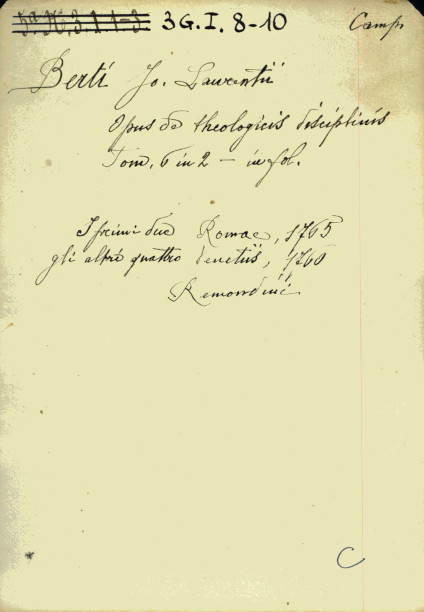 3G.I. 8-10 Camp
Berti Jo. Laurentii
Opus de theologicis disciplinis
Tom. 6 in 2 – in fol.
I primi due Romae, 1765
gli altri quattro Venetiis, 1760
Remondini
C